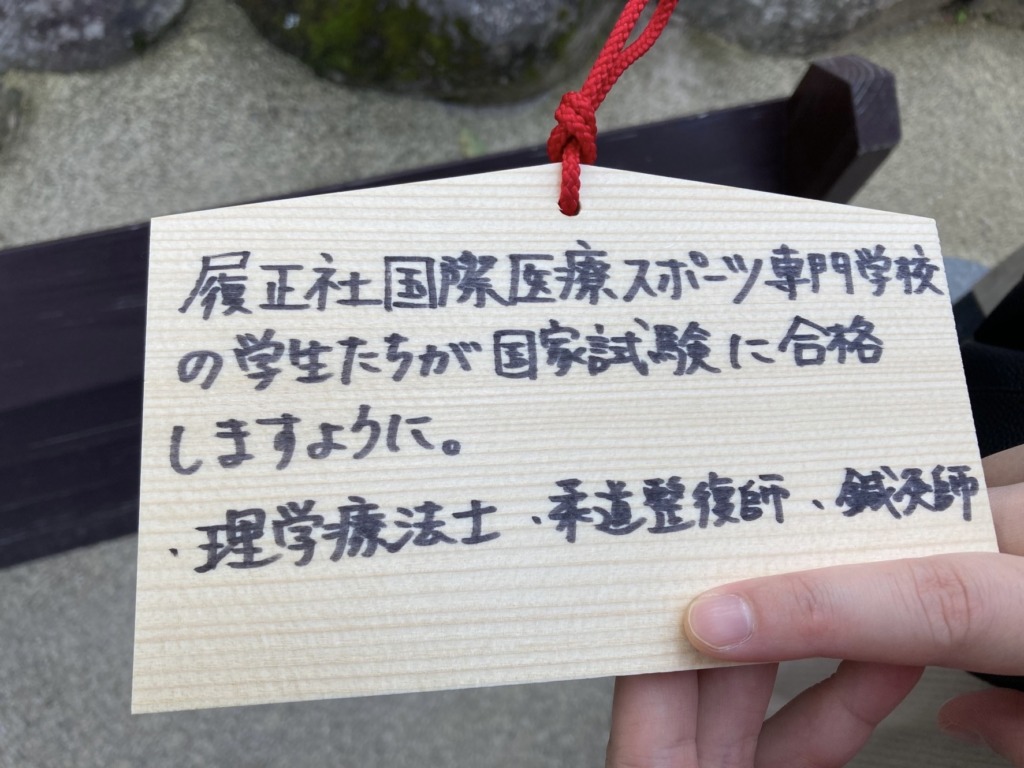 履正社国際医療スポーツ専門学校
の学生たちが国家試験に合格
しますように。
・理学療法士・柔道整復師・鍼灸師